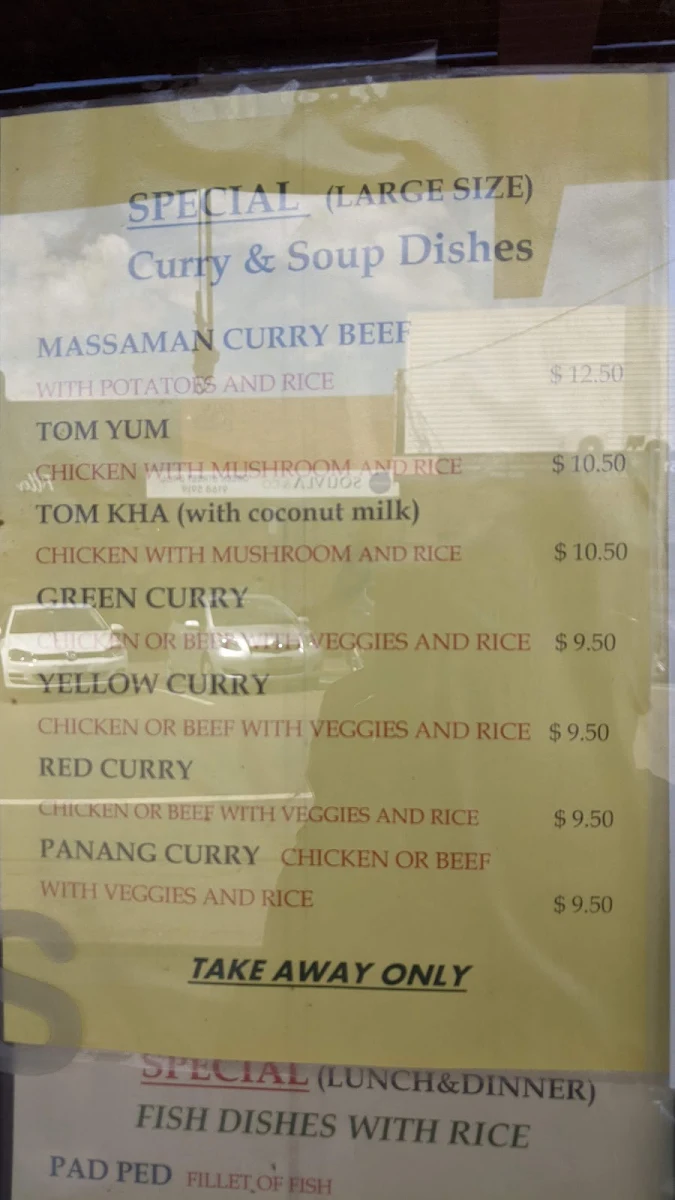 SPECIAL (LARGE SIZE)
Curry & Soup Dishes
MASSAMAN CURRY BEEF
WITH POTATOES AND RICE $ 12.50
TOM YUM
CHICKEN WITH MUSHROOM AND RICE $ 10.50
TOM KHA (with coconut milk)
CHICKEN WITH MUSHROOM AND RICE $ 10.50
GREEN CURRY
CHICKEN OR BEEF WITH VEGGIES AND RICE $ 9.50
YELLOW CURRY
CHICKEN OR BEEF WITH VEGGIES AND RICE $ 9.50
RED CURRY
CHICKEN OR BEEF WITH VEGGIES AND RICE $ 9.50
PANANG CURRY CHICKEN OR BEEF
WITH VEGGIES AND RICE $ 9.50
TAKE AWAY ONLY
S
SPECIAL (LUNCH&DINNER)
FISH DISHES WITH RICE
PAD PED FILLET OF FISH